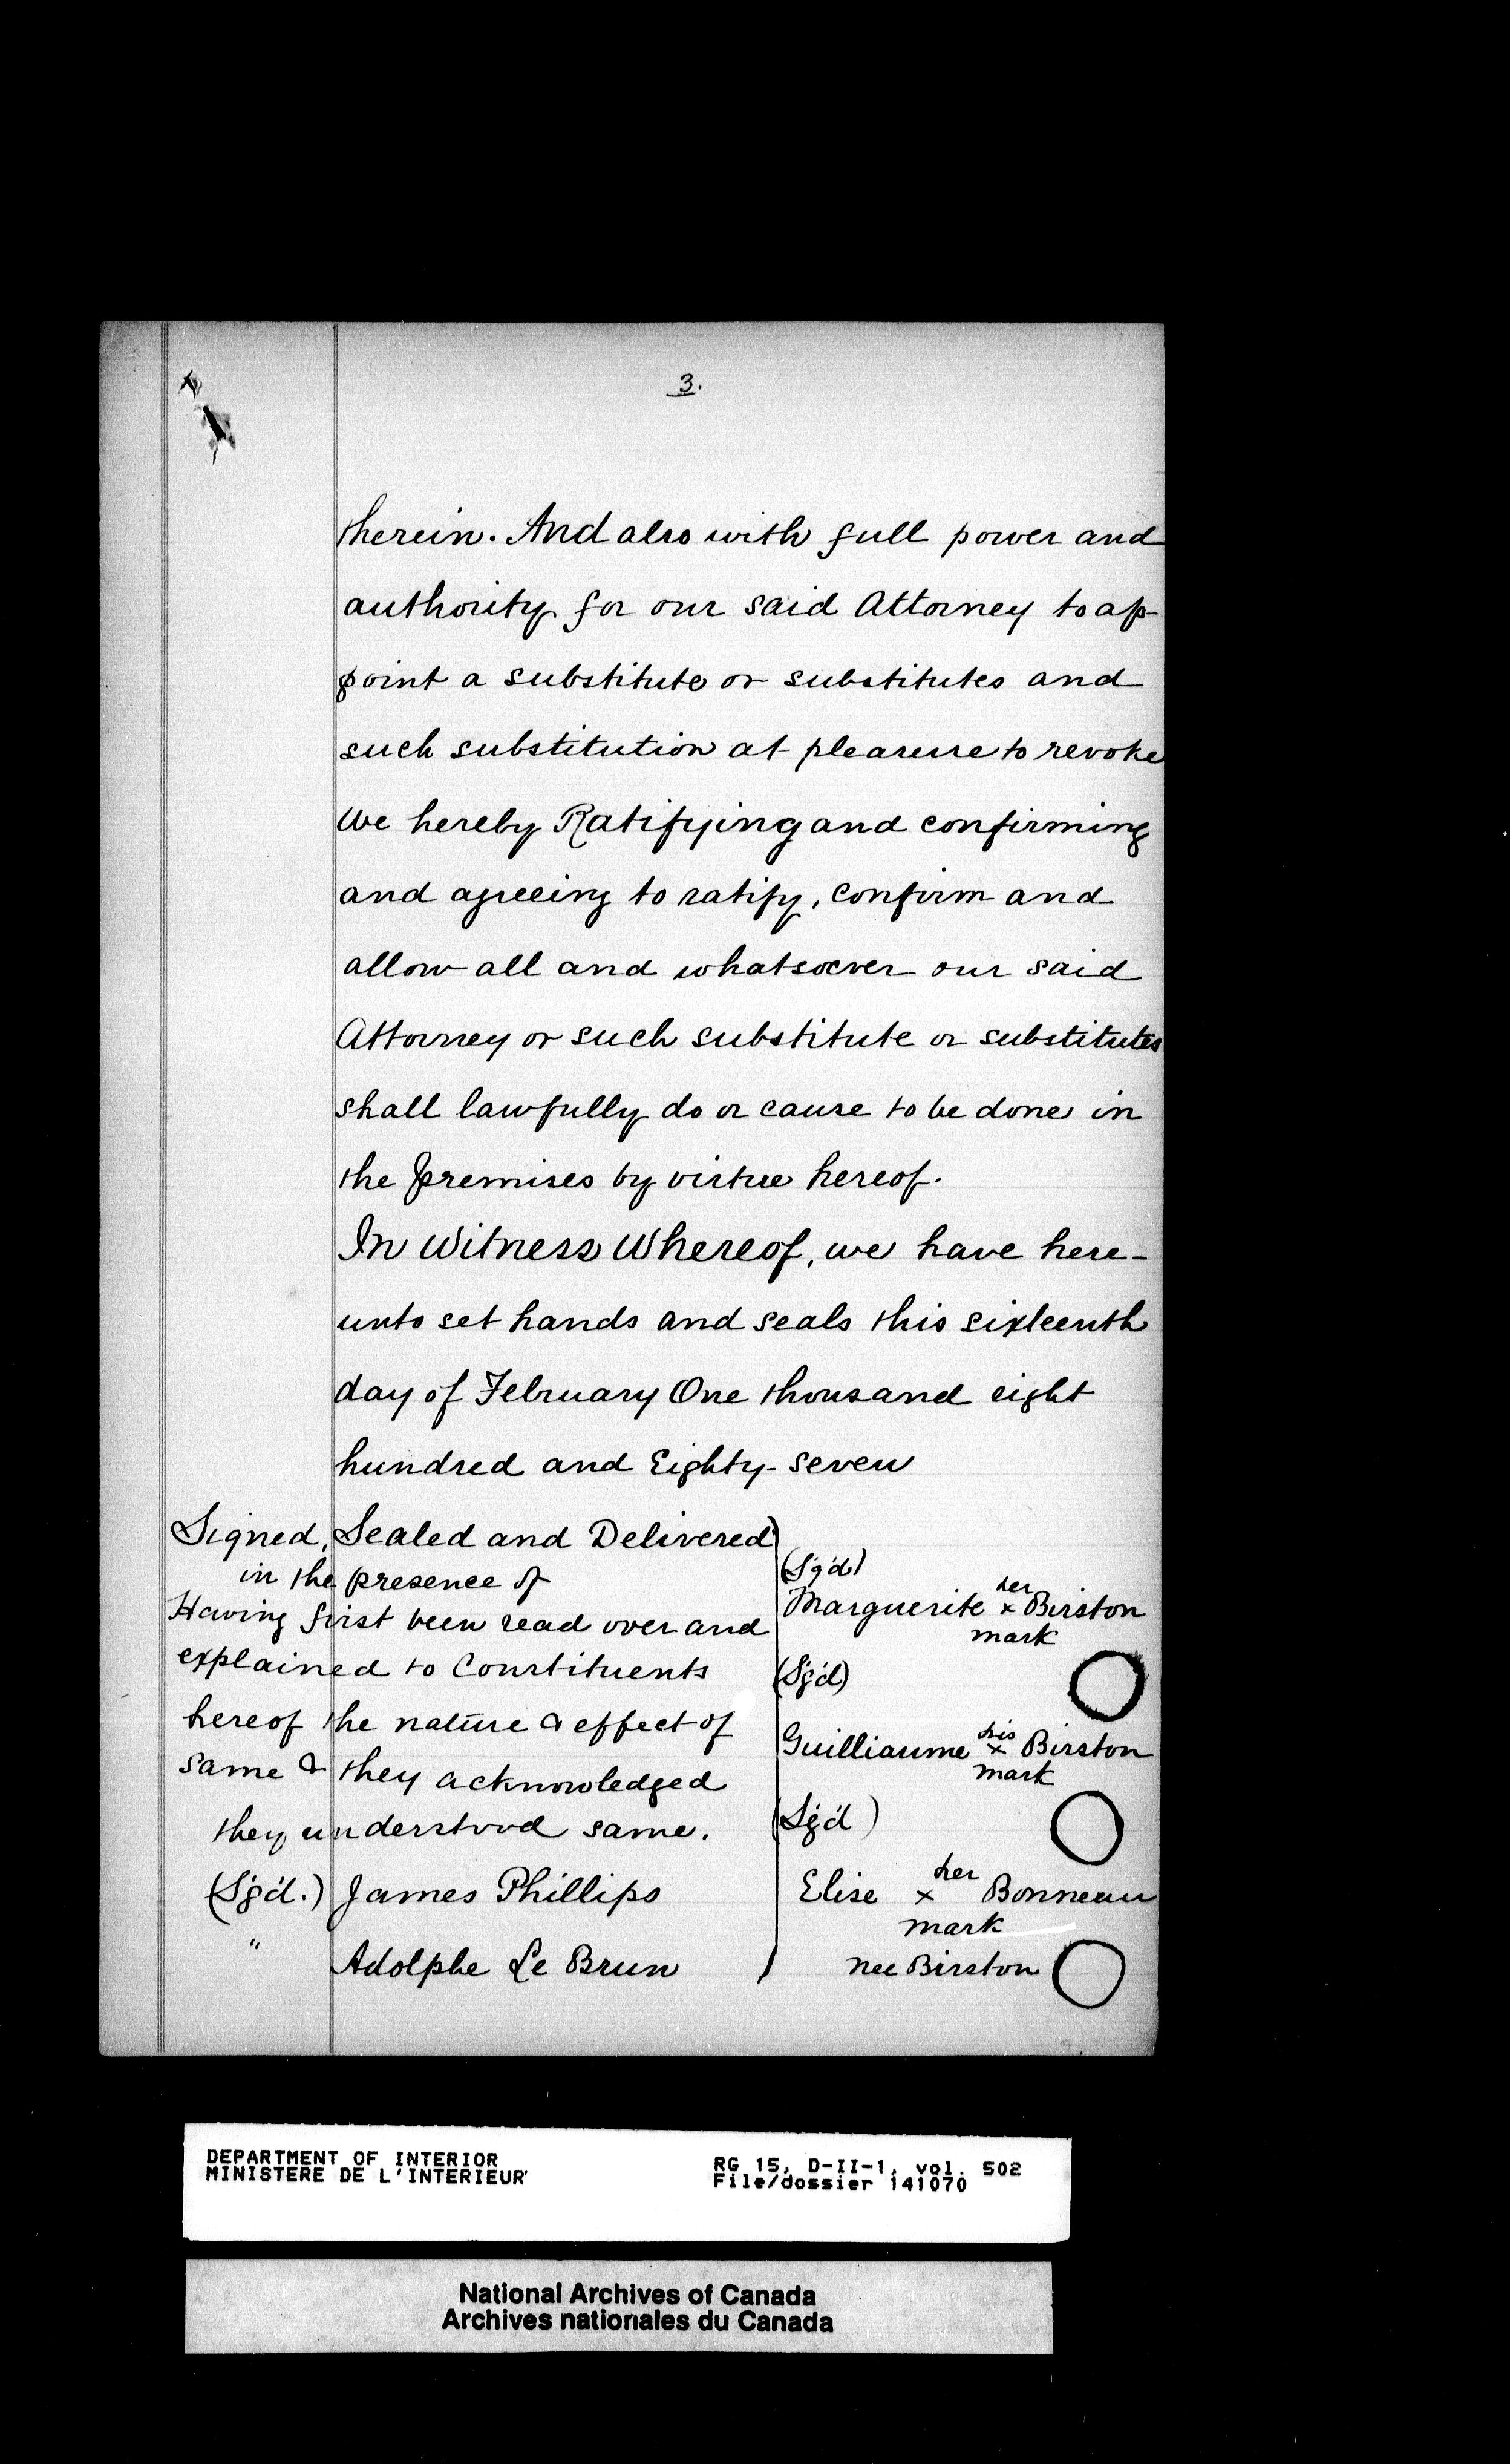 3.
therein. And also with full power and
authority for our said Attorney to ap-
point a substitute or substitutes and
such substitution at pleasure to revoke
We hereby Ratifying and confirming
and agreeing to ratify, confirm and
allow all and whatsoever our said
Attorney or such substitute or substitutes
shall lawfully do or cause to be done in
the premises by virtue hereof.
In Witness Whereof, we have here-
unto set hands and seals this sixteenth
day of February One thousand eight
hundred and Eighty-seven
Signed, Sealed and Delivered)
in the presence of
Having first been read over and
explained to Constituents
hereof the nature & effect of
same & they acknowledged
they understood same.
(Sg'd.) James Phillips
" Adolphe Le Brun
(Sg'd)
her
Marguerite x Birston
mark
(Sg'd)
his
Guilliaume x Birston
mark
(Sg'd)
her
Elise x Bonneau
mark
nee Birston
DEPARTMENT OF INTERIOR
MINISTERE DE L'INTERIEUR
RG 15, D-II-1, vol. 502
File/dossier 141070
National Archives of Canada
Archives nationales du Canada